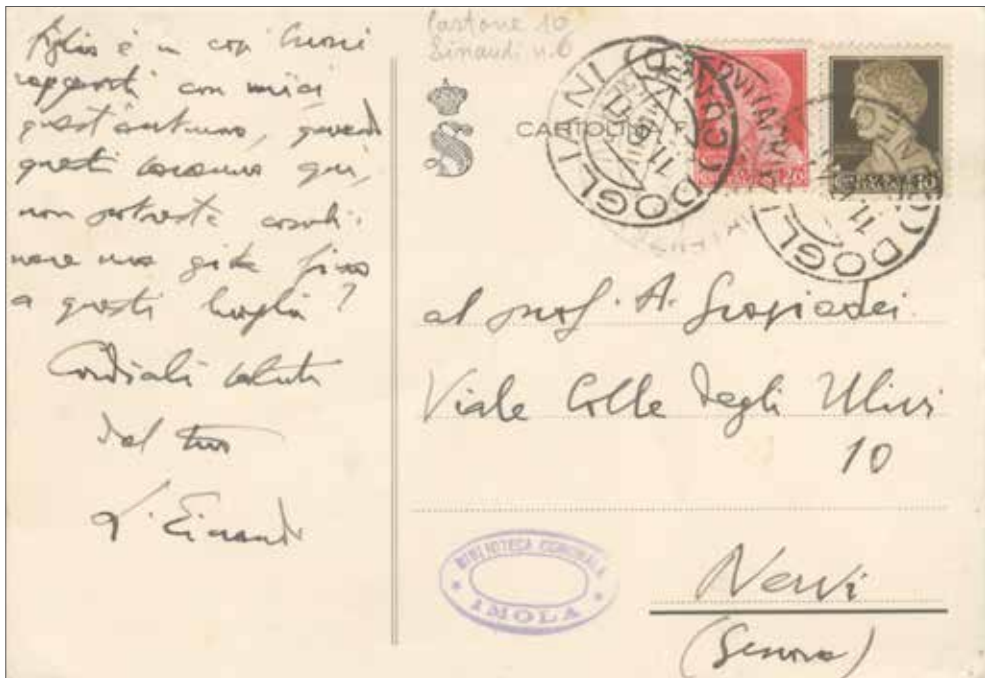 Cartone 10
Einaudi n. 6
figlio è in così buoni
rapporti con miei
quest'autunno, quando
questi saranno qui,
non potreste combi-
nare una gita fino
a questi luoghi?
Cordiali saluti
dal tuo
L. Einaudi
CARTOLINA
DOGLIANI (CUNEO)
DOGLIANI
al prof. A. Graziadei
Viale Colle degli Ulivi
10
Nervi
(Genova)
BIBLIOTECA COMUNALE
IMOLA